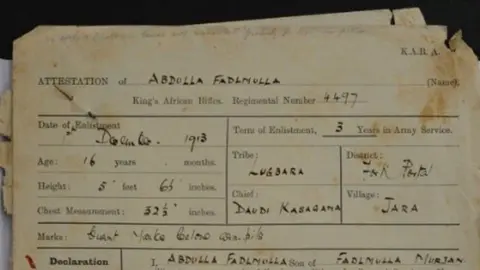 K.A.R. A.
ATTESTATION of ABDULLA FADLMULLA (Name).
King's African Rifles. Regimental Number 4497
Date of Enlistment
December 1913
Term of Enlistment, 3 Years in Army Service.
Age: 16 years . months.
Tribe:
LUGBARA
District:
Fort Portal
Height: 5 feet 6½ inches.
Chief:
DAUDI KASAGAMA
Village:
JARA
Chest Measurement: 32½ inches. 
Marks: Burnt Marks below armpits
Declaration I, ABDULLA FADLMULLA Son of FADLMULLA MURJAN